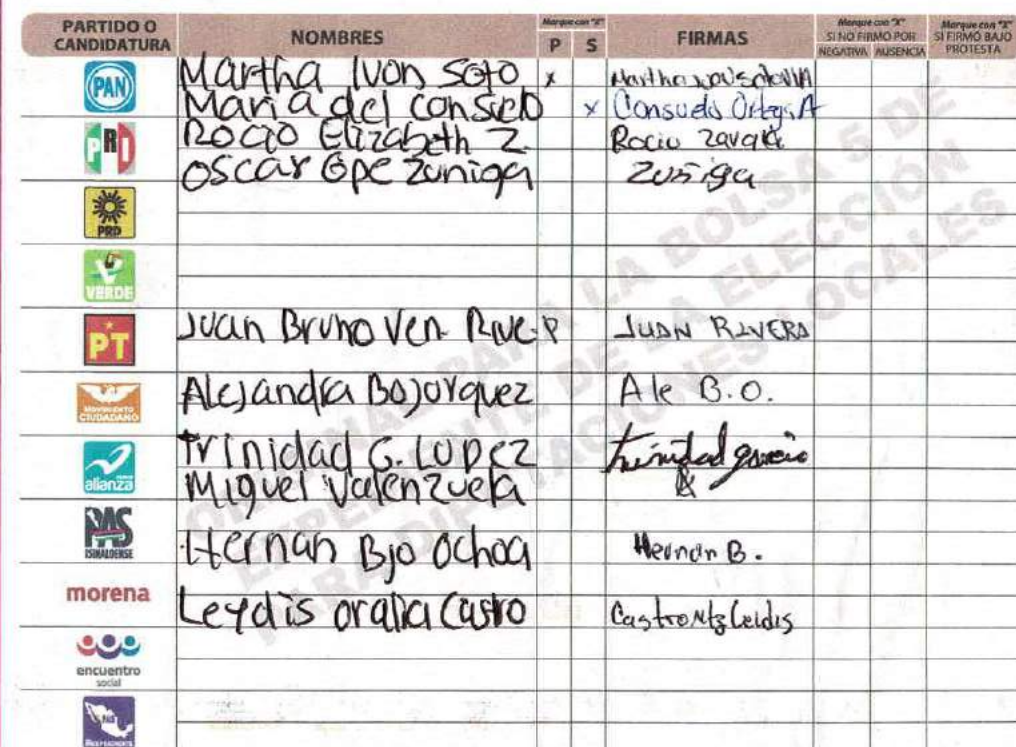 PARTIDO O CANDIDATURA NOMBRES Marque con "X" P S FIRMAS Marque con "X" SI NO FIRMÓ POR NEGATIVA AUSENCIA Marque con "X" SI FIRMÓ BAJO PROTESTA
PAN Martha Ivon Soto x Martha
Maria del consuelo x Consuelo Orteg. A
PRI Rocio Elizabeth Z. Rocio Zavala
oscar Gpe Zuniga Zuñiga
PRD
VERDE
PT Juan Bruno Ven. Rive-P JUAN RIVERA
MOVIMIENTO CIUDADANO Alejandra Bojorquez Ale B.O.
alianza Trinidad G. Lopez trinidad garcia
Miguel Valenzuela
PAS SINALOENSE Hernan Bjo Ochoa Hernan B.
morena Leydis oralia Castro Castro Mtz Leidis
encuentro social
INDEPENDIENTE
PARA LA BOLSA 5 DE
EXPEDIENTE DE LA ELECCIÓN
PARA DIPUTACIONES LOCALES